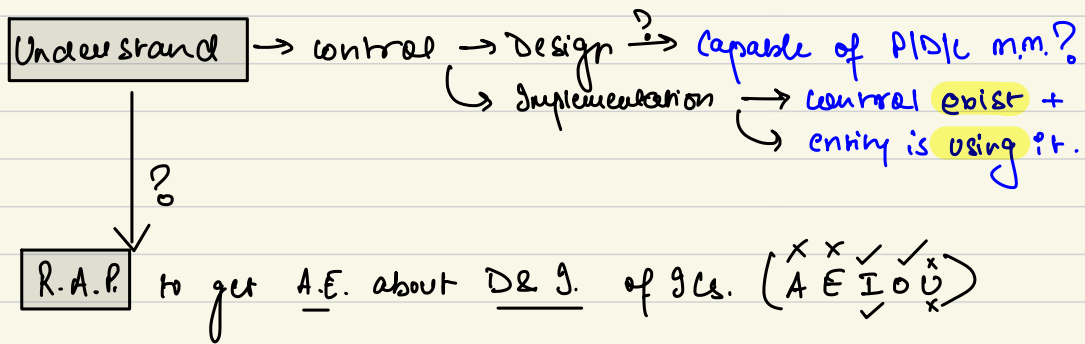 Understand → control → Design ?→ Capable of P/D/C m.m.?
↳ Implementation → control exist +
↳ entity is using it.
?
R.A.P. to get A.E. about D & I. of ICs. (A E I O U)